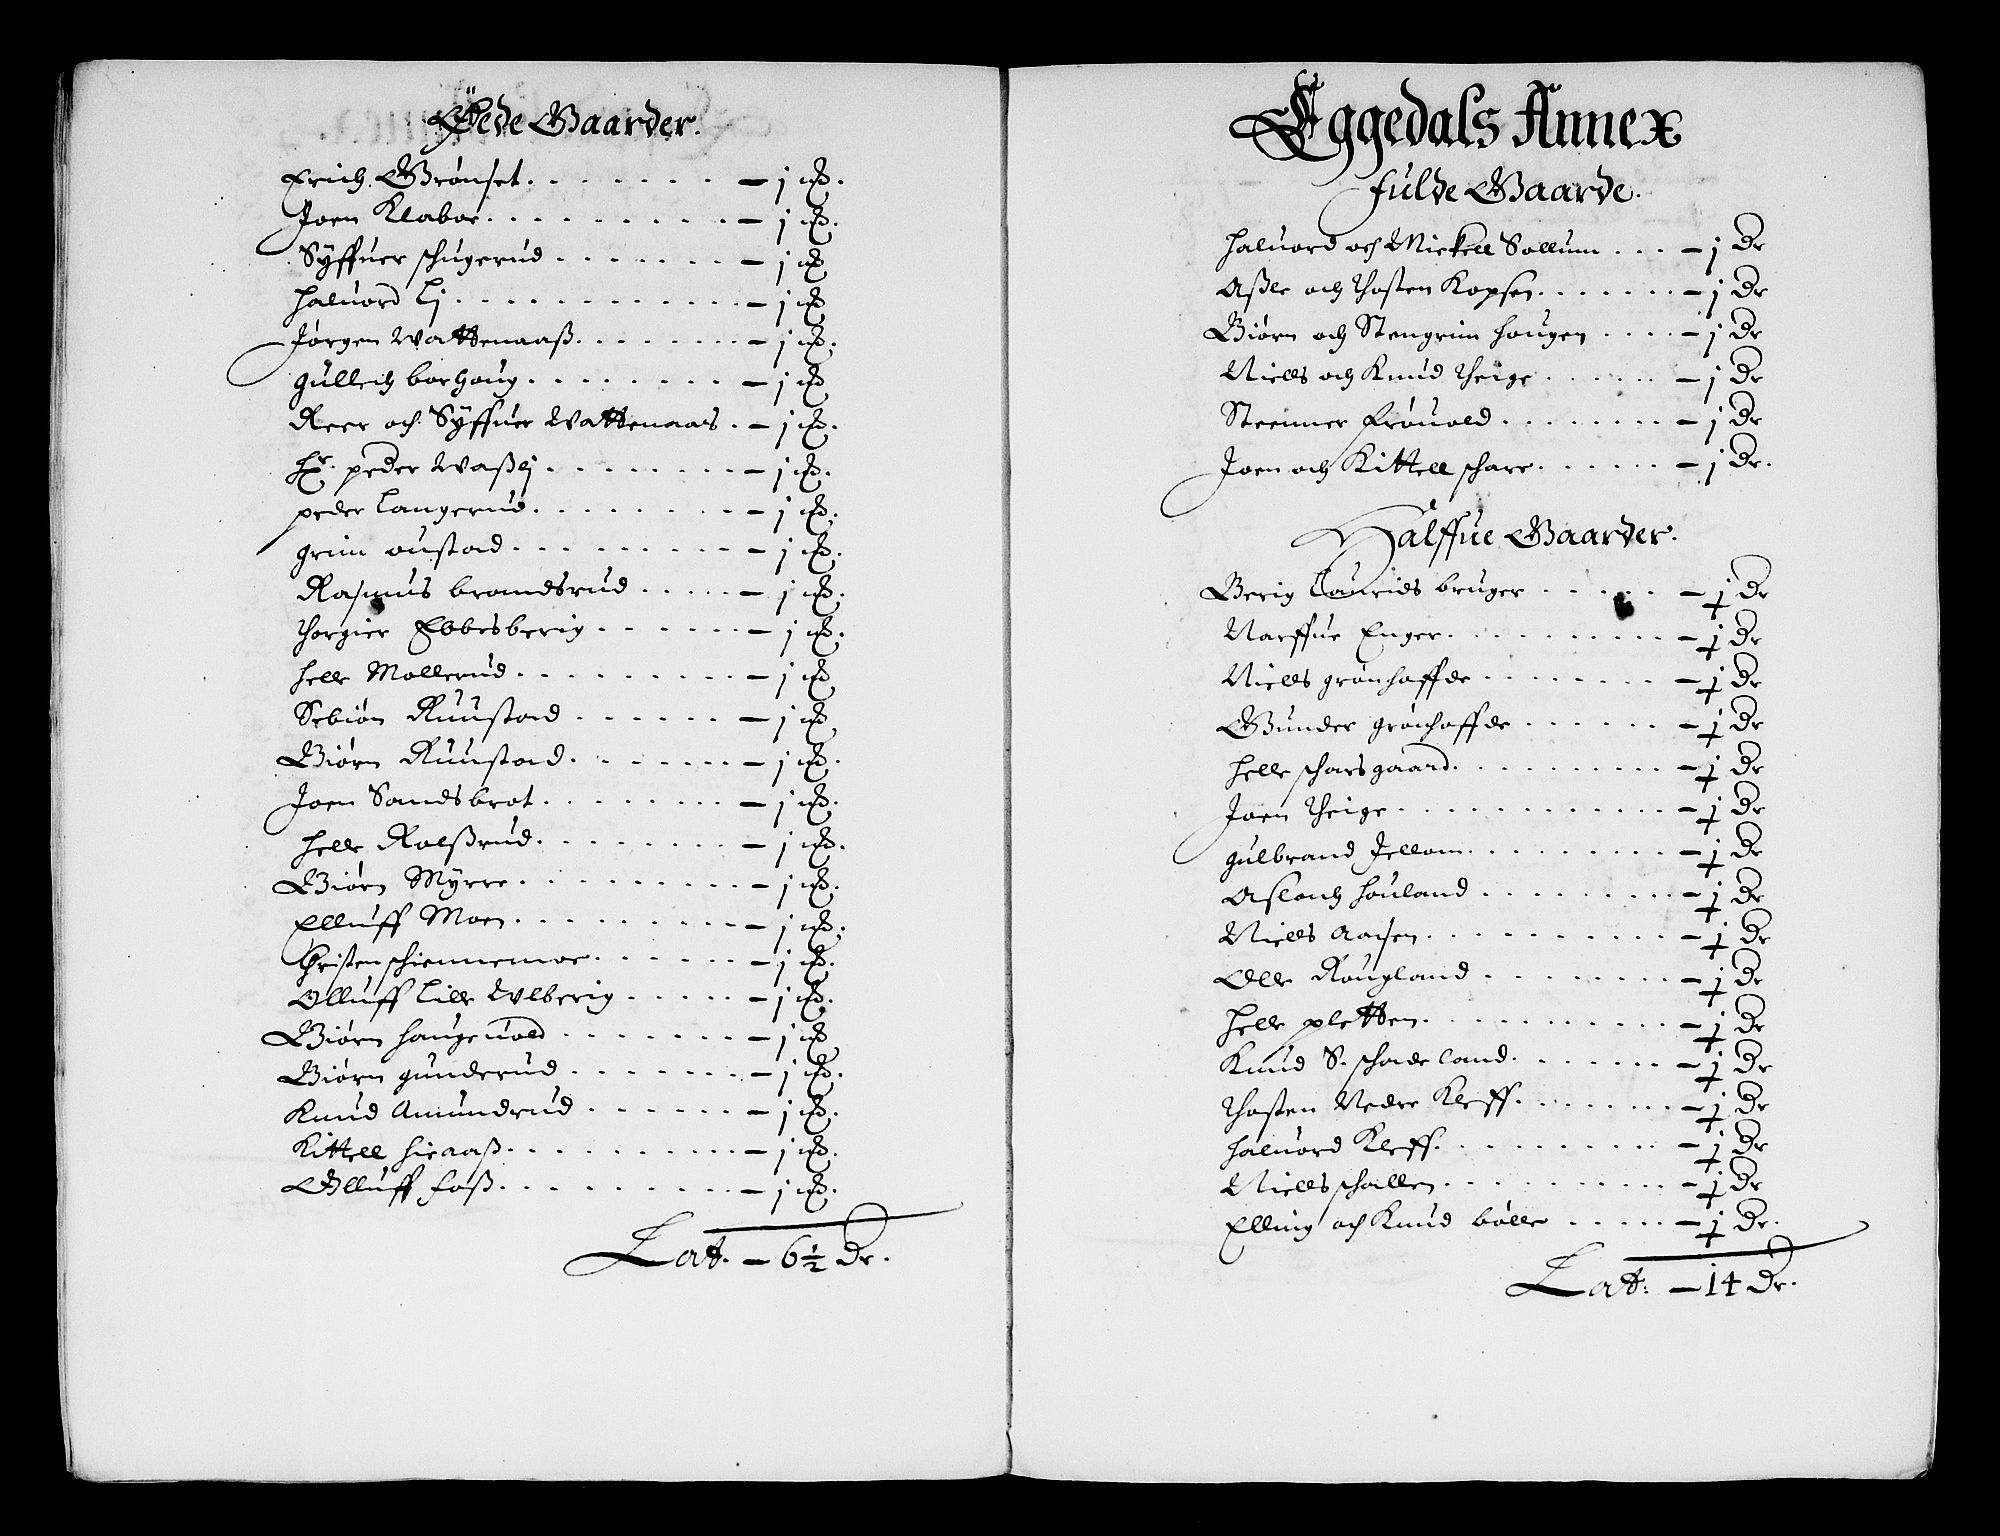 Øede Gaarder.
Erich Grønset. - j ort.
Joen Klaboe. - j ort.
Syffuer schugerud - j ort
Haluord Lj. - j ort
Jørgen Wattenaaß. - j ort.
Gullich borhaug. - j ort
Reer och Syffuer Wattenaas. - j ort.
Hr. peder Waßlj. - j ort.
peder Langerud. - j ort.
Grim oustad. - j ort.
Rasmus brandsrud - j ort.
Thorgier Ebbesberig - j ort.
Helle Mollerud. - j ort
Sebiøn Ruustad - j ort
Biørn Ruustad. - j ort.
Joen Sandsbrot. - j ort.
Helle Rolßrud. - j ort.
Biørn Myrre. - j ort.
Elluff Moen. - j ort.
Christen schiennemoe. - j ort.
Olluff Lille Ulberig - j ort.
Biørn Haugeuold - j ort
Biørn gunderud - j ort.
Knud Amundrud - j ort.
Kittell Hieaaß. - j ort.
Olluff Foß. - j ort.
Lat. - 6½ Dr.
Eggedals Annex
Fulde Gaarde.
Haluord och Mickell Sollum - j Dr
Aßle och Thosten Kopsen. - j Dr
Biørn och Stengrim Hougen - j Dr
Niells och Knud Theige - j Dr
Steenner Frøuold. - j Dr
Joen och Kittell schare. - j Dr.
Halffue Gaarder.
Berig Laurids bruger - ½ Dr
Narffue Enger. - ½ Dr
Niells grønhoffde - ½ Dr
Gunder grønhoffde - ½ Dr
Helle scharsgaard. - ½ Dr
Joen Theige. - ½ Dr
Gulbrand Jellom. - ½ Dr
Aslach Houland - ½ Dr
Niells Aasen. - ½ Dr
Olle Rougland - ½ Dr
Helle pletten. - ½ Dr
Knud S. schadeland. - ½ Dr
Thosten Nedre Kleff. - ½ Dr
Haluord Kleff. - ½ Dr
Niells schallen. - ½ Dr
Elling och Knud bølle - ½ Dr.
Lat: - 14 Dr.